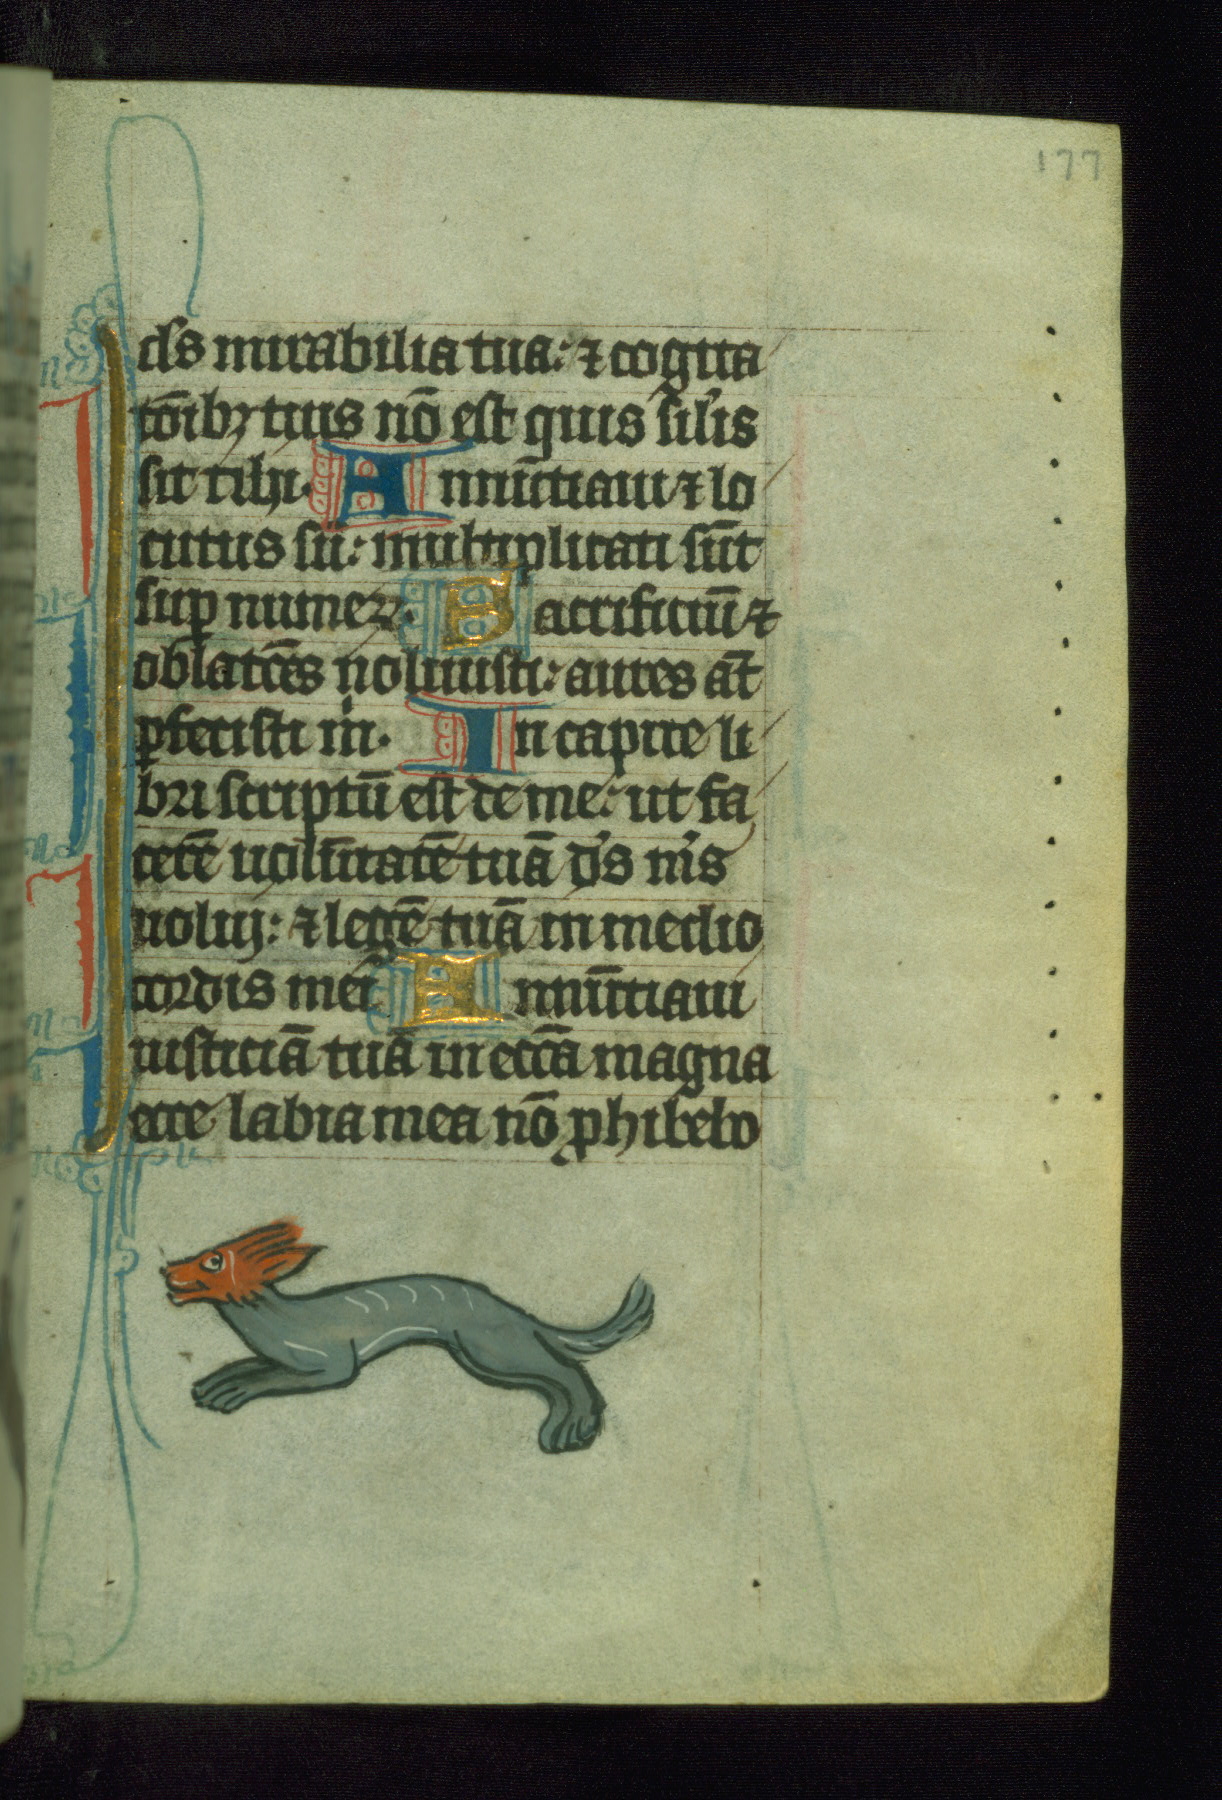 177
ds mirabilia tua: ⁊ cogita
tōibꝫ tuis nō est quis sil'is
sit tibi. Annūtiaui ⁊ lo
cutus sū: multiplicati sūt
sup numeꝝ. Sacrificiū ⁊
oblatōēs noluisti: aures aūt
ꝑfecisti m̄. In capite li
bri scriptū est de me: ut fa
cerē uolūtatē tuā ds ms
uoluj: ⁊ legē tuā in medio
cordis mei Annūtiaui
iusticiā tuā in ecc̄a magna
ecce labia mea nō ꝓhibebo